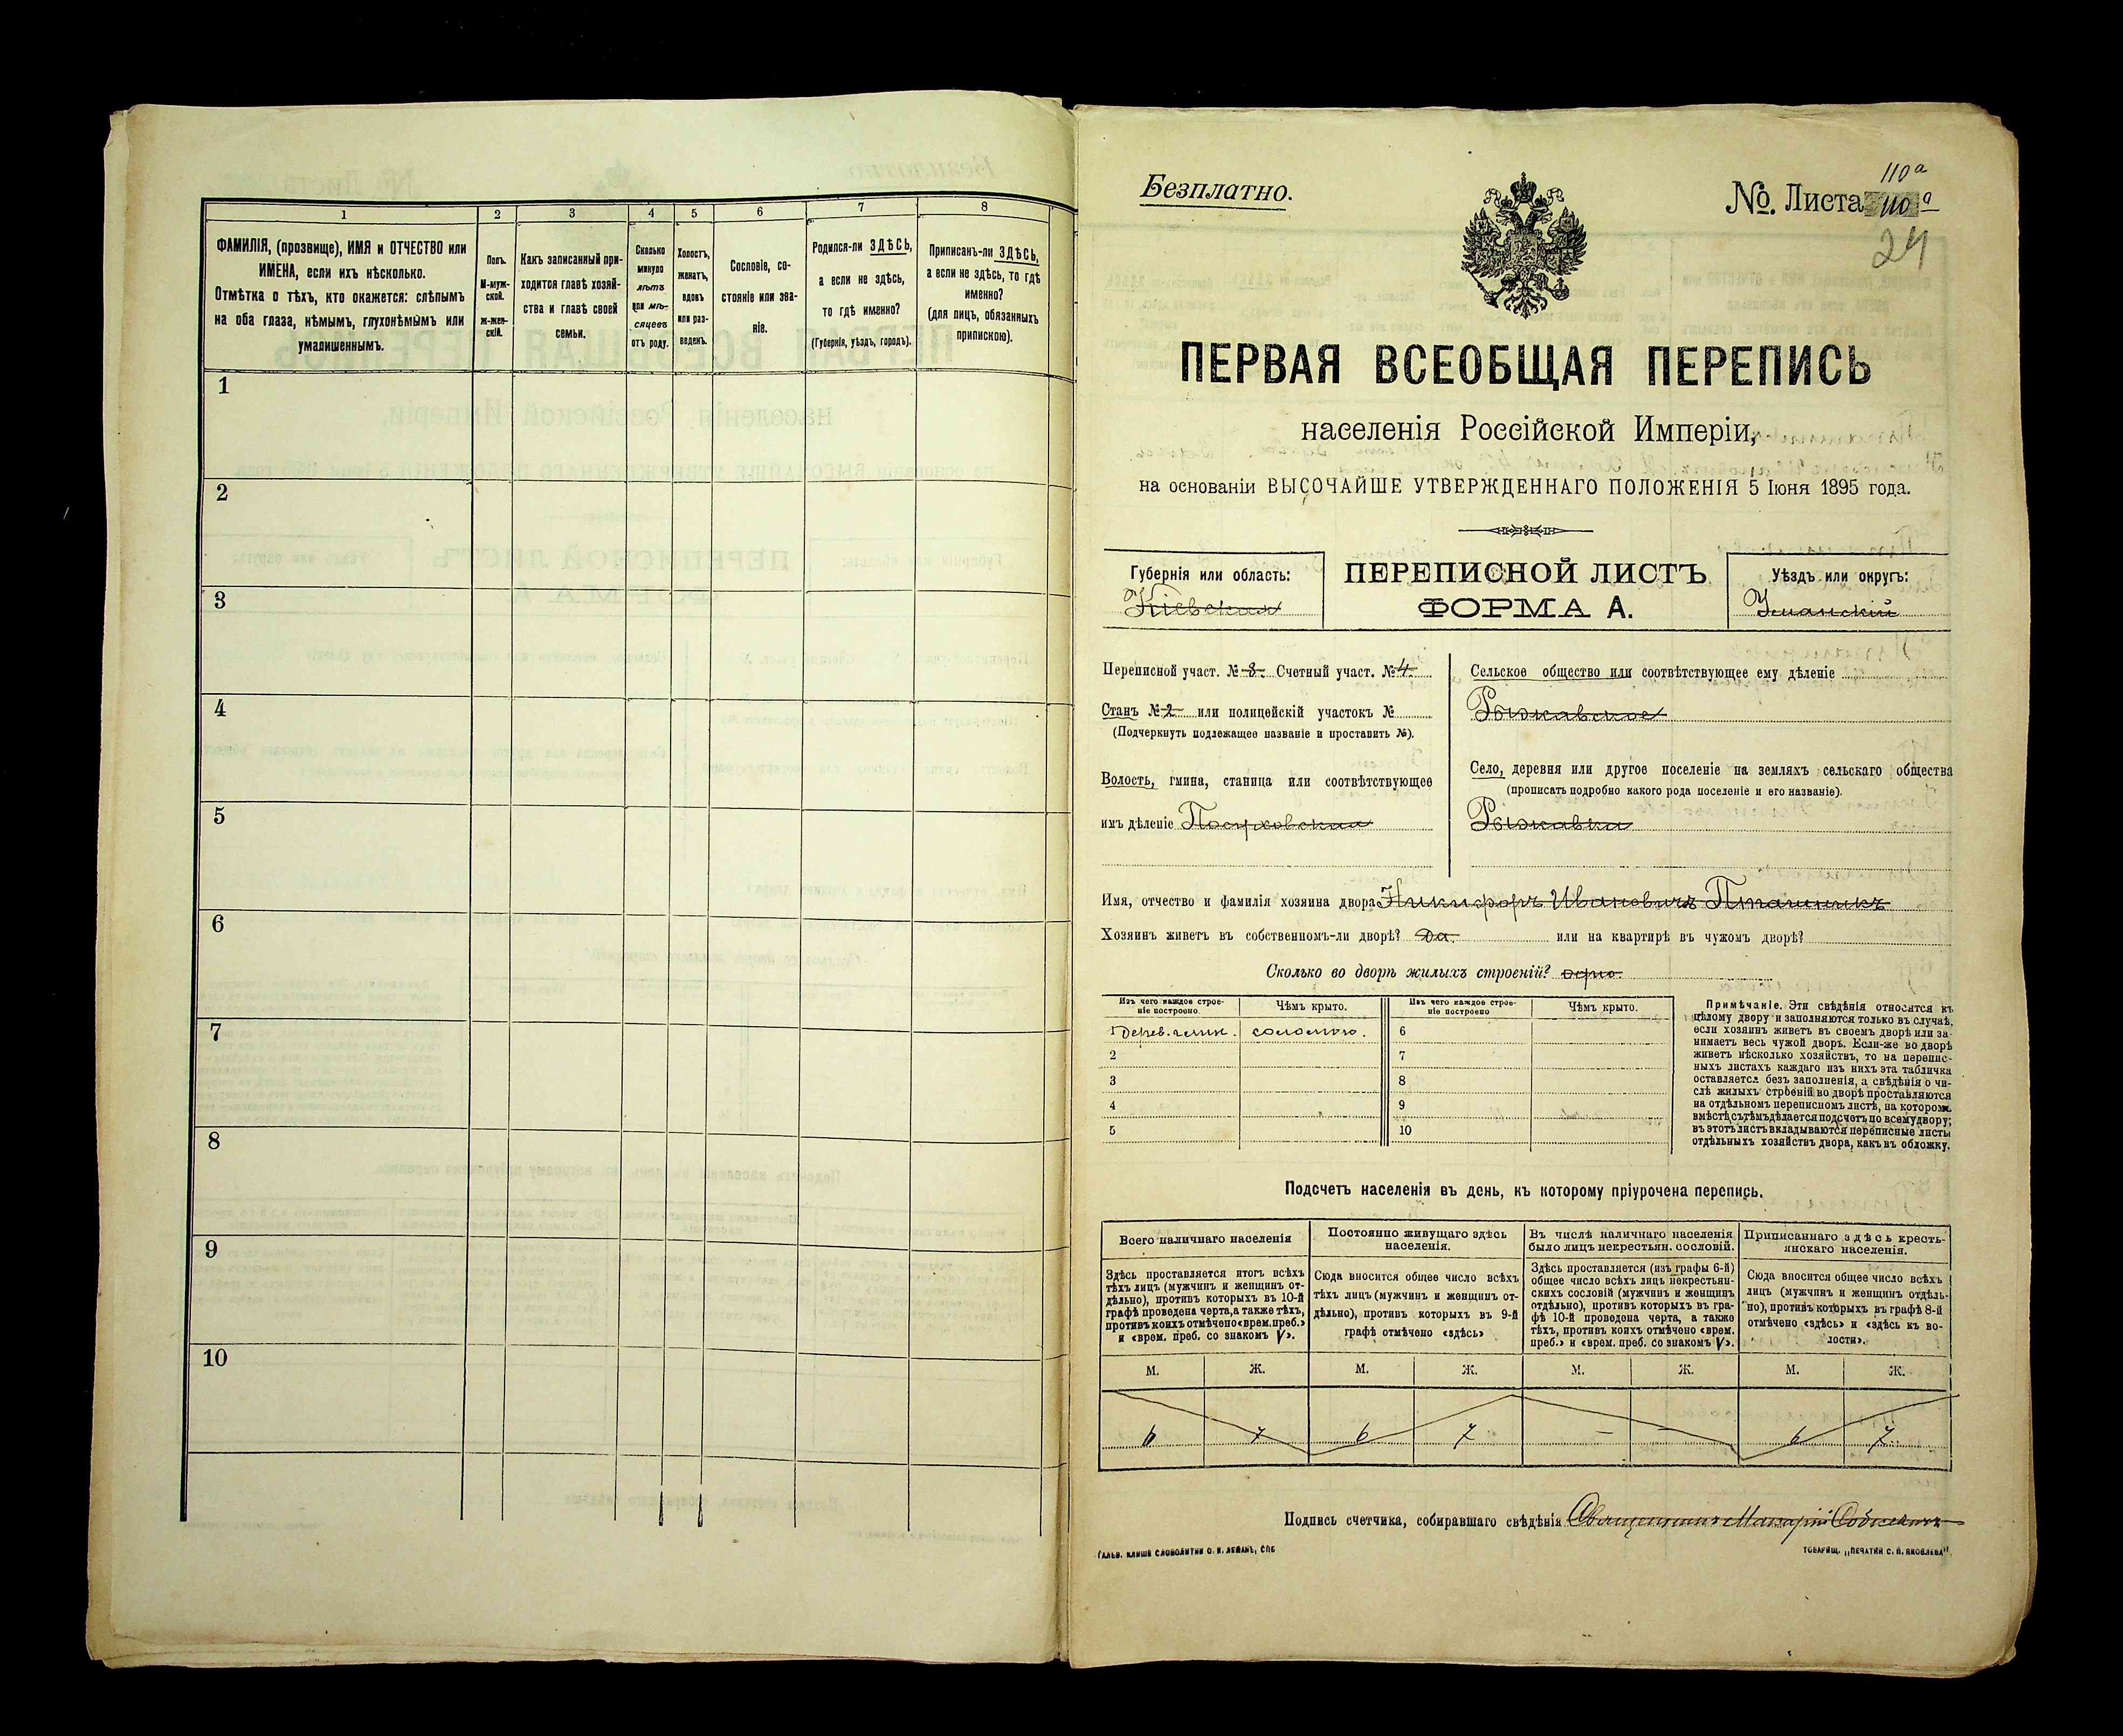 1 2 3 4 5 6 7 8
ФАМИЛІЯ, (прозвище), ИМЯ и ОТЧЕСТВО или
ИМЕНА, если ихъ нѣсколько.
Отмѣтка о тѣхъ, кто окажется: слѣпымъ
на оба глаза, нѣмымъ, глухонѣмымъ или
умалишеннымъ.
Полъ.
М-муж-
ской.
ж-жен-
скій.
Какъ записанный при-
ходится главѣ хозяй-
ства и главѣ своей
семьи.
Сколько
минуло
лѣтъ
или мѣ-
сяцевъ
отъ роду.
Холостъ,
женатъ,
вдовъ
или раз-
веденъ.
Сословіе, со-
стояніе или зва-
ніе.
Родился-ли ЗДѢСЬ,
а если не здѣсь,
то гдѣ именно?
(Губернія, уѣздъ, городъ).
Приписанъ-ли ЗДѢСЬ,
а если не здѣсь, то гдѣ
именно?
(для лицъ, обязанныхъ
припискою).
1
2
3
4
5
6
7
8
9
10
110а
Безплатно.
№. Листа 110а
24
ПЕРВАЯ ВСЕОБЩАЯ ПЕРЕПИСЬ
населенія Россійской Имперіи,
на основаніи ВЫСОЧАЙШЕ УТВЕРЖДЕННАГО ПОЛОЖЕНІЯ 5 Іюня 1895 года.
Губернія или область:
Кіевская
ПЕРЕПИСНОЙ ЛИСТЪ
ФОРМА А.
Уѣздъ или округъ:
Уманскій
Переписной участ. № 8. Счетный участ. № 4.
Станъ № 2 или полицейскій участокъ №
(Подчеркнуть подлежащее названіе и проставить №).
Волость, гмина, станица или соотвѣтствующее
имъ дѣленіе Посуховская
Сельское общество или соотвѣтствующее ему дѣленіе
Рыжавское
Село, деревня или другое поселеніе на земляхъ сельскаго общества
(прописать подробно какого рода поселеніе и его названіе).
Рыжавка
Имя, отчество и фамилія хозяина двора Никифоръ Ивановичъ Пташникъ
Хозяинъ живетъ въ собственномъ-ли дворѣ? да. или на квартирѣ въ чужомъ дворѣ?
Сколько во дворѣ жилыхъ строеній? одно.
Изъ чего каждое строе-
ніе построено.
Чѣмъ крыто.
Изъ чего каждое строе-
ніе построено
Чѣмъ крыто.
1 дерев. глин. соломою. 6
2 7
3 8
4 9
5 10
Примѣчаніе. Эти свѣдѣнія относятся къ
цѣлому двору и заполняются только въ случаѣ,
если хозяинъ живетъ въ своемъ дворѣ или за-
нимаетъ весь чужой дворъ. Если-же во дворѣ
живетъ нѣсколько хозяйствъ, то на перепис-
ныхъ листахъ каждаго изъ нихъ эта табличка
оставляется безъ заполненія, а свѣдѣнія о чи-
слѣ жилыхъ строеній во дворѣ проставляются
на отдѣльномъ переписномъ листѣ, на которомъ
вмѣстѣ съ тѣмъ дѣлается подсчетъ по всему двору;
въ этотъ листъ вкладываются переписные листы
отдѣльныхъ хозяйствъ двора, какъ въ обложку.
Подсчетъ населенія въ день, къ которому пріурочена перепись.
Всего наличнаго населенія
Постоянно живущаго здѣсь
населенія.
Въ числѣ наличнаго населенія
было лицъ некрестьян. сословій.
Приписаннаго здѣсь кресть-
янскаго населенія.
Здѣсь проставляется итогъ всѣхъ
тѣхъ лицъ (мужчинъ и женщинъ от-
дѣльно), противъ которыхъ въ 10-й
графѣ проведена черта, а также тѣхъ,
противъ коихъ отмѣчено «врем. преб.»
и «врем. преб. со знакомъ V».
Сюда вносится общее число всѣхъ
тѣхъ лицъ (мужчинъ и женщинъ от-
дѣльно), противъ которыхъ въ 9-й
графѣ отмѣчено «здѣсь»
Здѣсь проставляется (изъ графы 6-й)
общее число всѣхъ лицъ некрестьян-
скихъ сословій (мужчинъ и женщинъ
отдѣльно), противъ которыхъ въ гра-
фѣ 10-й проведена черта, а также
тѣхъ, противъ коихъ отмѣчено «врем.
преб.» и «врем. преб. со знакомъ V».
Сюда вносится общее число всѣхъ
лицъ (мужчинъ и женщинъ отдѣль-
но), противъ которыхъ въ графѣ 8-й
отмѣчено «здѣсь» и «здѣсь къ во-
лости».
М. Ж. М. Ж. М. Ж. М. Ж.
6 7 6 7 — — 6 7
Подпись счетчика, собиравшаго свѣдѣнія Священникъ Макарій
ГАЛЬВ. КЛИШЕ СЛОВОЛИТНИ О. И. ЛЕМАНЪ, СПБ
ТОВАРИЩ. „ПЕЧАТНЯ С. П. ЯКОВЛЕВА".